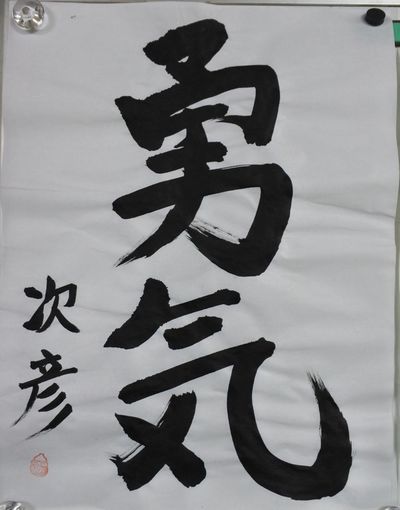 勇気
次彦